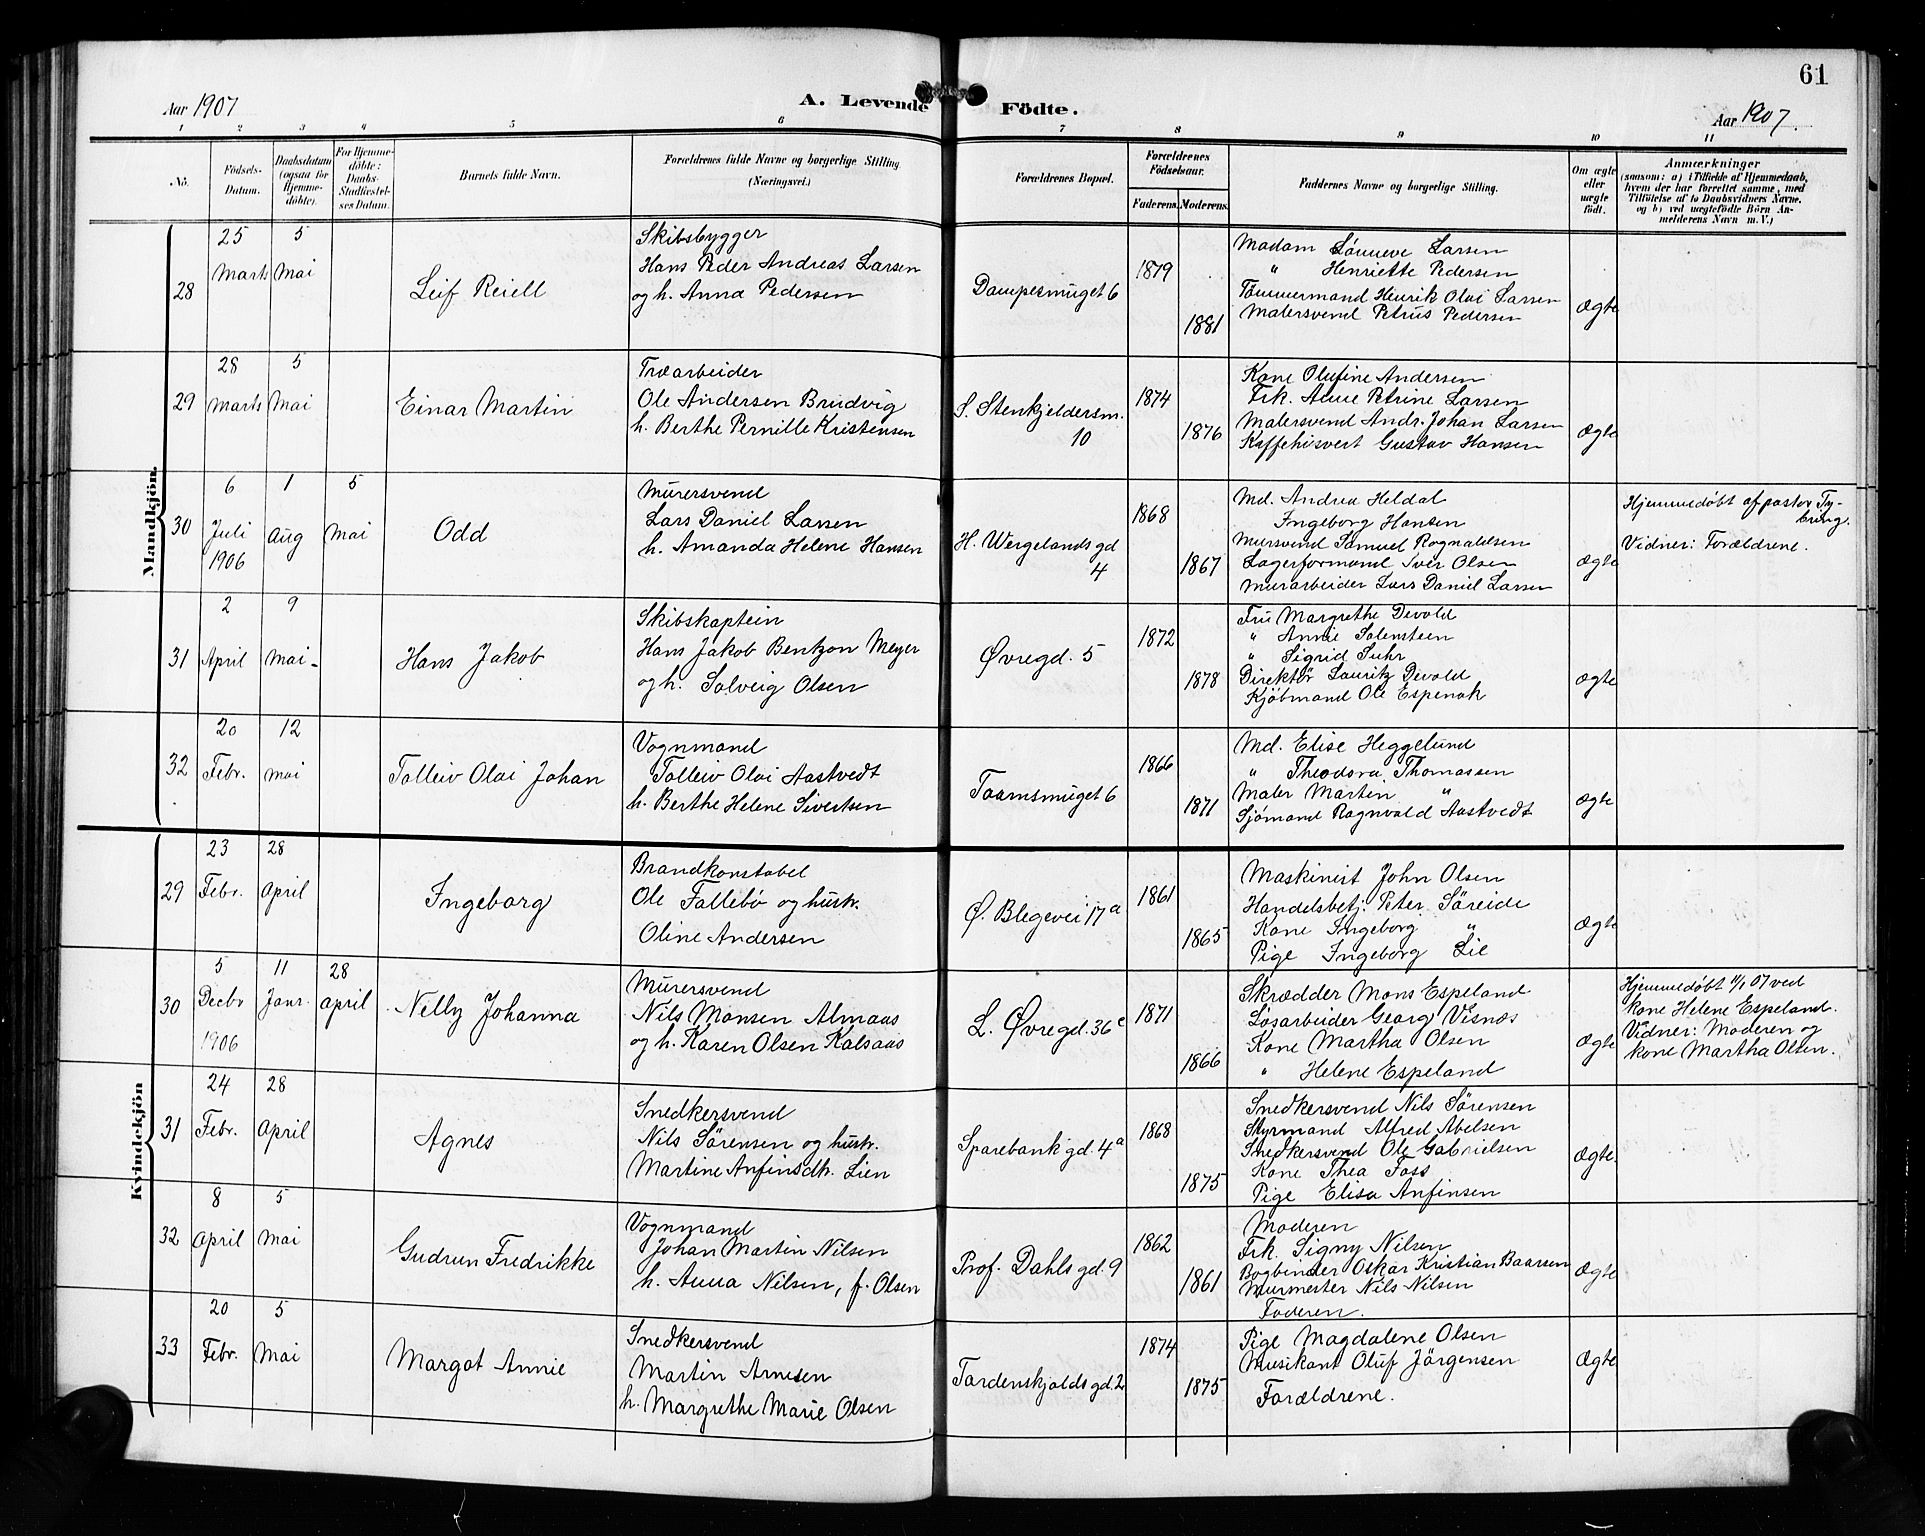 61
Aar 1907
A. Levende Födte.
Aar 1907.
1 2 3 4 5 6 7 8 9 10 11
No.
Födsels-
Datum.
Daabsdatum
(ogsaa for
Hjemme-
döbte).
For Hjemme-
döbte:
Daabs-
Stadfæstel-
ses Datum.
Barnets fulde Navn.
Forældrenes fulde Navne og borgerlige Stilling
(Næringsvei.)
Forældrenes Bopæl.
Forældrenes
Födselsaar.
Faderens. Moderens.
Faddernes Navne og borgerlige Stilling.
Om ægte
eller
uægte
født.
Anmærkninger
(saasom: a) i Tilfælde af Hjemmedaab,
hvem der har forrettet samme, med
Tilföielse af to Daabsvidners Navne.
og b) ved uægtefødte Börn An-
melderens Navn m. V.)
Mandkjön.
28
25
Marts
5
Mai
Leif Reiell
Skibsbygger
Hans Peder Andreas Larsen
og h. Anna Pedersen
Dampesmuget 6
1879
1881
Madam Lønneve Larsen
" Henriette Pedersen
Tømmermand Henrik Olai Larsen
Malersvend Petrus Pedersen
Ægte
29
28
Marts
5
Mai
Einar Martin
Træarbeider
Ole Andersen Brudvig
h. Berthe Pernille Kristensen
S. Stenkjeldersm.
10
1874
1876
Kone Olufine Andersen
Frk. Anne Petrine Larsen
Malersvend Andr. Johan Larsen
Kaffehusvert Gustav Hansen
Ægte
30
6
Juli
1906
1
Aug
5
Mai
Odd
Murersvend
Lars Daniel Larsen
h. Amanda Helene Hansen
H. Wergelandsgd
4
1868
1867
Md. Andrea Heldal
Ingeborg Hansen
Mursvend Samuel Rognaldsen
Lagerformand Iver Olsen
Murarbeider Lars Daniel Larsen
Ægte
Hjemmedøbt af pastor Ty-
bring.
Vidner: Forældrene.
31
2
April
9
Mai
Hans Jakob
Skibskaptein
Hans Jakob Bentzon Meyer
og h. Solveig Olsen
Øvregd. 5
1872
1878
Fru Margrethe Devold
" Annie Solensteen
" Sigrid Suhr
Direktør Lauritz Devold
Kjøbmand Ole Espenak
Ægte
32
20
Febr.
12
Mai
Tolleiv Olai Johan
Vognmand
Tolleiv Olai Aastvedt
h. Berthe Helene Sivertsen
Taarnsmuget 6
1866
1871
Md. Elise Heggelund
" Theodora Thomassen
Maler Martin "
Sjømand Ragnvald Aastvedt
Ægte
Kvindekjön
29
23
Febr.
28
April
Ingeborg
Brandkonstabel
Ole Fallebø og hustr.
Oline Andersen
Ø. Blegevei 17a
1861
1865
Maskinist John Olsen
Handelsbetj. Peter Søreide
Kone Ingeborg "
Pige Ingeborg Lie
Ægte
30
5
Decbr
1906
11
Janr.
28
April
Nelly Johanna
Murersvend
Nils Monsen Almaas
og h. Karen Olsen Kalsaas
L. Øvregd. 36c
1871
1866
Skrædder Mons Espeland
Løsarbeider Georg Visnæs
Kone Martha Olsen
" Helene Espeland
Ægte
Hjemmedøbt 11/1 07 ved
kone Helene Espeland.
Vidner: Moderen og
kone Martha Olsen.
31
24
Febr.
28
April
Agnes
Snedkersvend
Nils Sørensen og hustr.
Martine Anfinsdtr. Lien
Sparebankgd. 4a
1868
1875
Snedkersvend Nils Sørensen
Styrmand Alfred Abelsen
Snedkersvend Ole Gabrielsen
Kone Thea Foss
Pige Elisa Anfinsen
Ægte.
32
8
April
5
Mai
Gudrun Fredrikke
Vognmand
Johan Martin Nilsen
h. Anna Nilsen, f. Olsen
Prof. Dahls gd. 9
1862
1861
Moderen
Frk. Signy Nilsen
Bogbinder Oskar Kristian Baarsen
Murmester Nils Nilsen
Faderen.
Ægte
33
20
Febr.
5
Mai
Margot Annie
Snedkersvend
Martin Arnesen
h. Margrethe Marie Olsen
Tordenskjoldsgd. 2
1874
1875
Pige Magdalene Olsen
Musikant Oluf Jørgensen
Forældrene.
Ægte